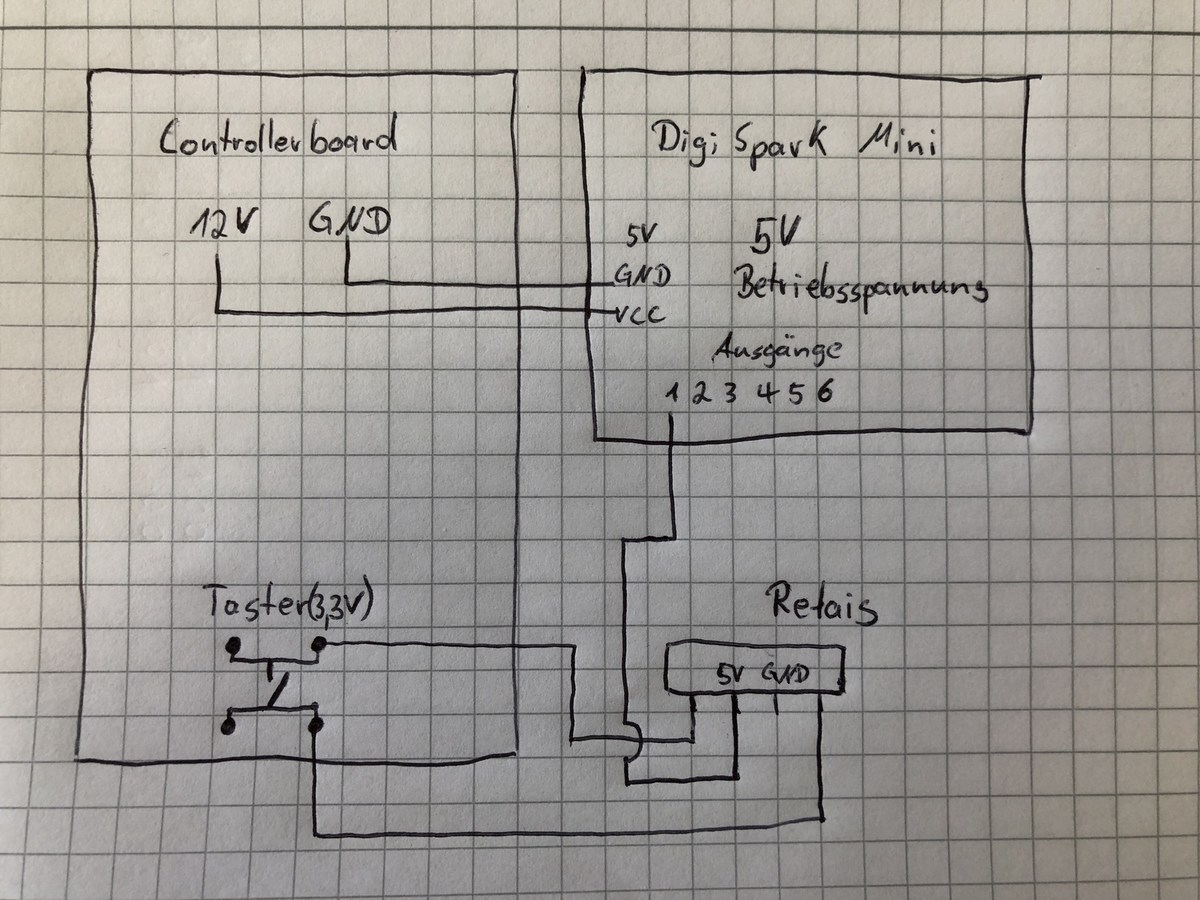 Controllerboard
12V GND
DigiSpark Mini
5V 5V
GND Betriebsspannung
VCC
Ausgänge
1 2 3 4 5 6
Taster(3,3V)
Relais
5V GND